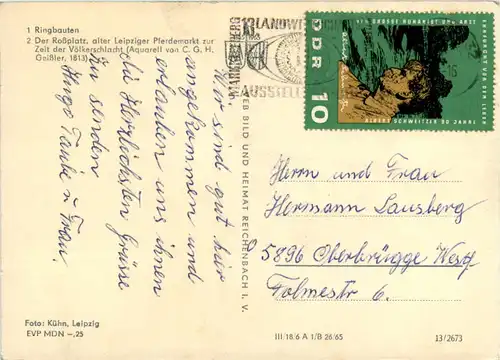 1 Ringbauten
2 Der Roßplatz, alter Leipziger Pferdemarkt zur
Zeit der Völkerschlacht (Aquarell von C. G. H.
Geißler, 1813)
Wir sind gut hier
angekommen und
erlauben uns ihnen
die Herzlichsten Grüsse
zu senden
Hugo Taube u Frau.
Foto: Kühn, Leipzig
EVP MDN –,25
VEB BILD UND HEIMAT REICHENBACH I. V.
III/18/6 A 1/B 26/65
13/2673
MARKKLEEBERG
13.
LANDWIRTSCH
AUSSTELL
DDR
10
Herrn und Frau
Hermann Lausberg
5896 Oberbrügge Westf
Folmestr 6.